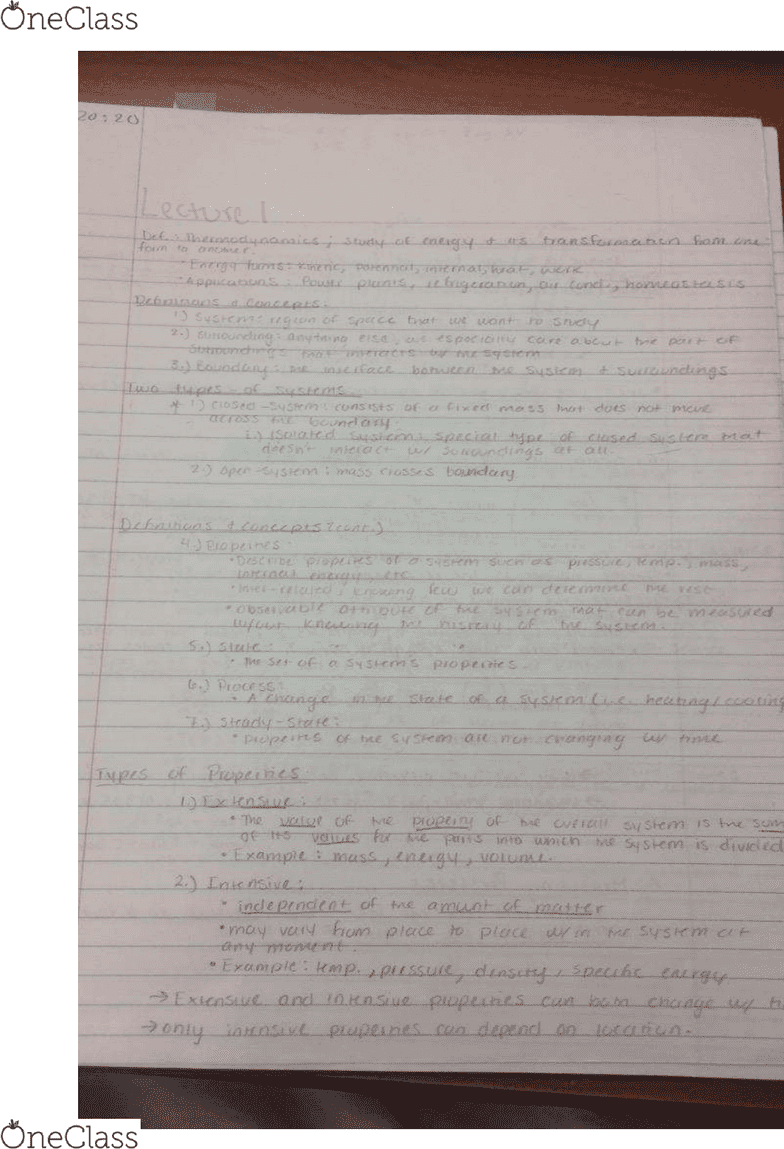 OneClass
20:20
Lecture 1
Def.: Thermodynamics; study of energy & its transformation from one
form to another
• Energy forms: kinetic, potential, internal, heat, work
• Applications: Power plants, refrigeration, air cond., homeostasis
Definitions & Concepts:
1) System: region of space that we want to study
2.) Surrounding: anything else, we especially care about the part of
surroundings that interacts w/ the system
3.) Boundary: the interface between the system & surroundings
Two types of systems
* 1) Closed-system: consists of a fixed mass that does not move
across the boundary.
i.) Isolated system: special type of closed system that
doesn't interact w/ surroundings at all.
2.) Open-system: mass crosses boundary
Definitions & Concepts (cont.)
4.) Properties:
• Describe properties of a system such as pressure, temp., mass,
internal energy, etc
• Inter-related; knowing few we can determine the rest
• observable attribute of the system that can be measured
w/out knowing the history of the system.
5.) State:
• The set of a system's properties.
6.) Process:
• A change in the state of a system (i.e. heating/cooling
7.) Steady-State:
• properties of the system are not changing w/ time
Types of Properties
1.) Extensive:
• The value of the property of the overall system is the sum
of its values for the parts into which the system is divided
• Example: mass, energy, volume.
2.) Intensive:
• independent of the amount of matter
• may vary from place to place w/in the system at
any moment.
• Example: temp., pressure, density, specific energy
→ Extensive and intensive properties can both change w/
→ only intensive properties can depend on location.
OneClass